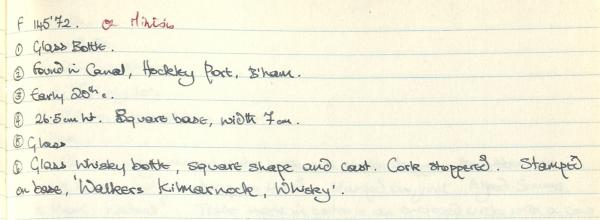 F 145'72.
① Glass Bottle.
② Found in Canal, Hockley Port, B'ham.
③ Early 20th c.
④ 26.5cm ht. Square base, width 7cm.
⑤ Glass
⑥ Glass whisky bottle, square shape and cast. Cork stoppered. Stamped
on base, 'Walkers Kilmarnock, Whisky'.